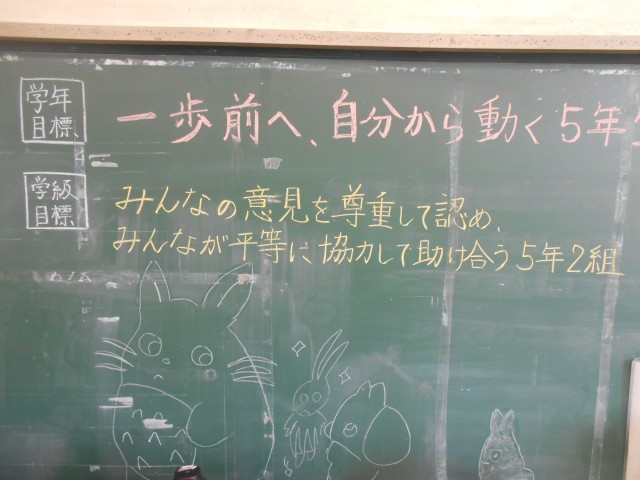 学年
目標
一歩前へ、自分から動く5年
学級
目標
みんなの意見を尊重して認め、
みんなが平等に協力して助け合う5年2組